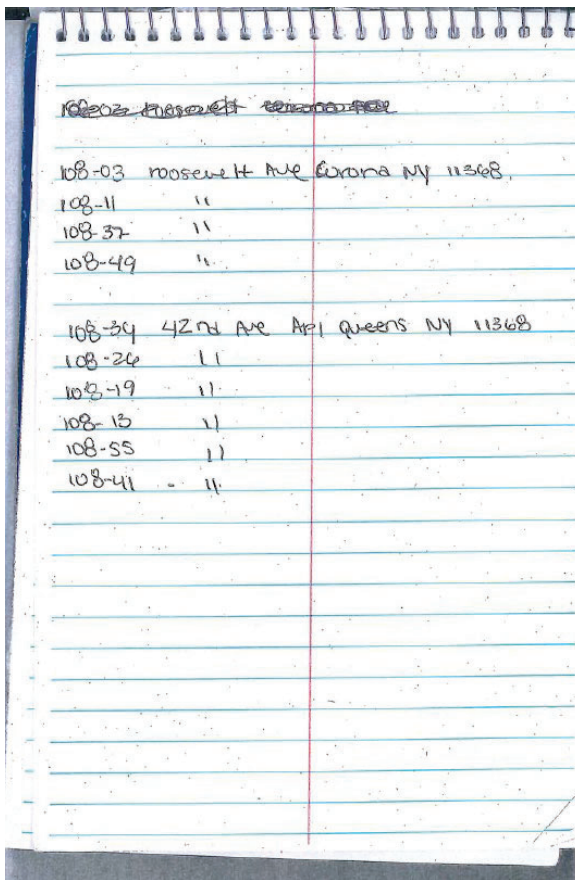 108-03 roosevelt Ave Corona NY 11368.
108-11 "
108-37 "
108-49 "
108-34 42nd Ave Apl Queens NY 11368
108-26 "
108-19 "
108-13 "
108-55 "
108-41 - "